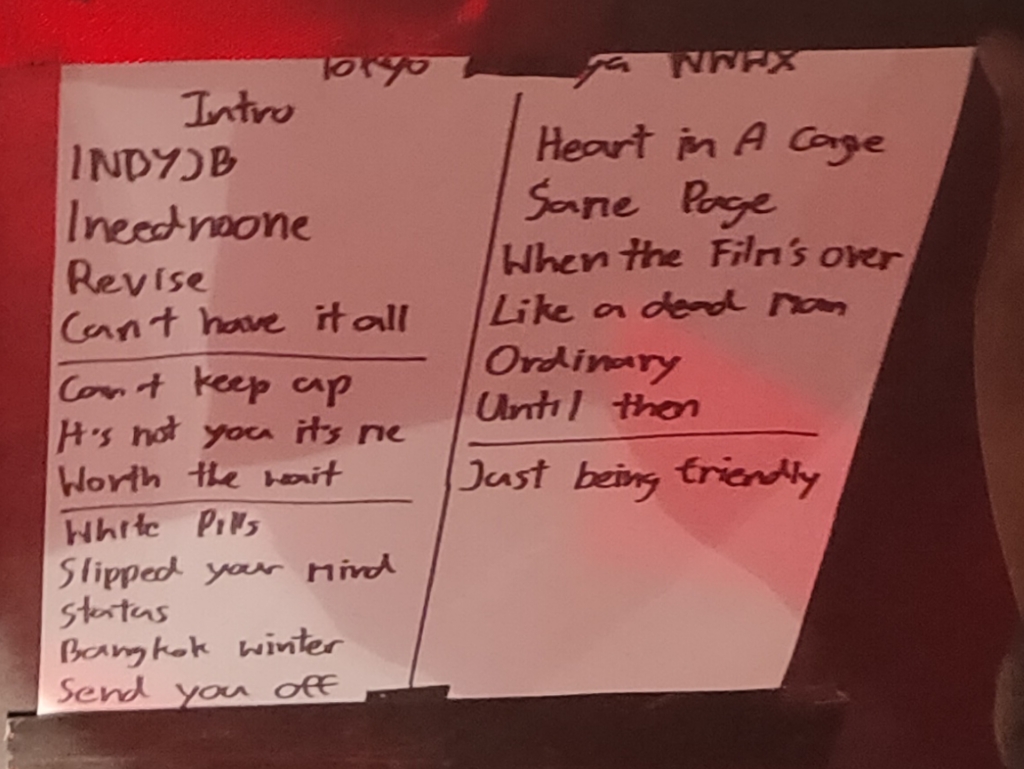 Tokyo WWWX
Intro
INDYJB
Ineednoone
Revise
Can't have it all
Can't keep up
It's not you it's me
Worth the wait
White Pills
Slipped your mind
Status
Bangkok winter
Send you off
Heart in A Cage
Same Page
When the Film's over
Like a dead man
Ordinary
Until then
Just being friendly